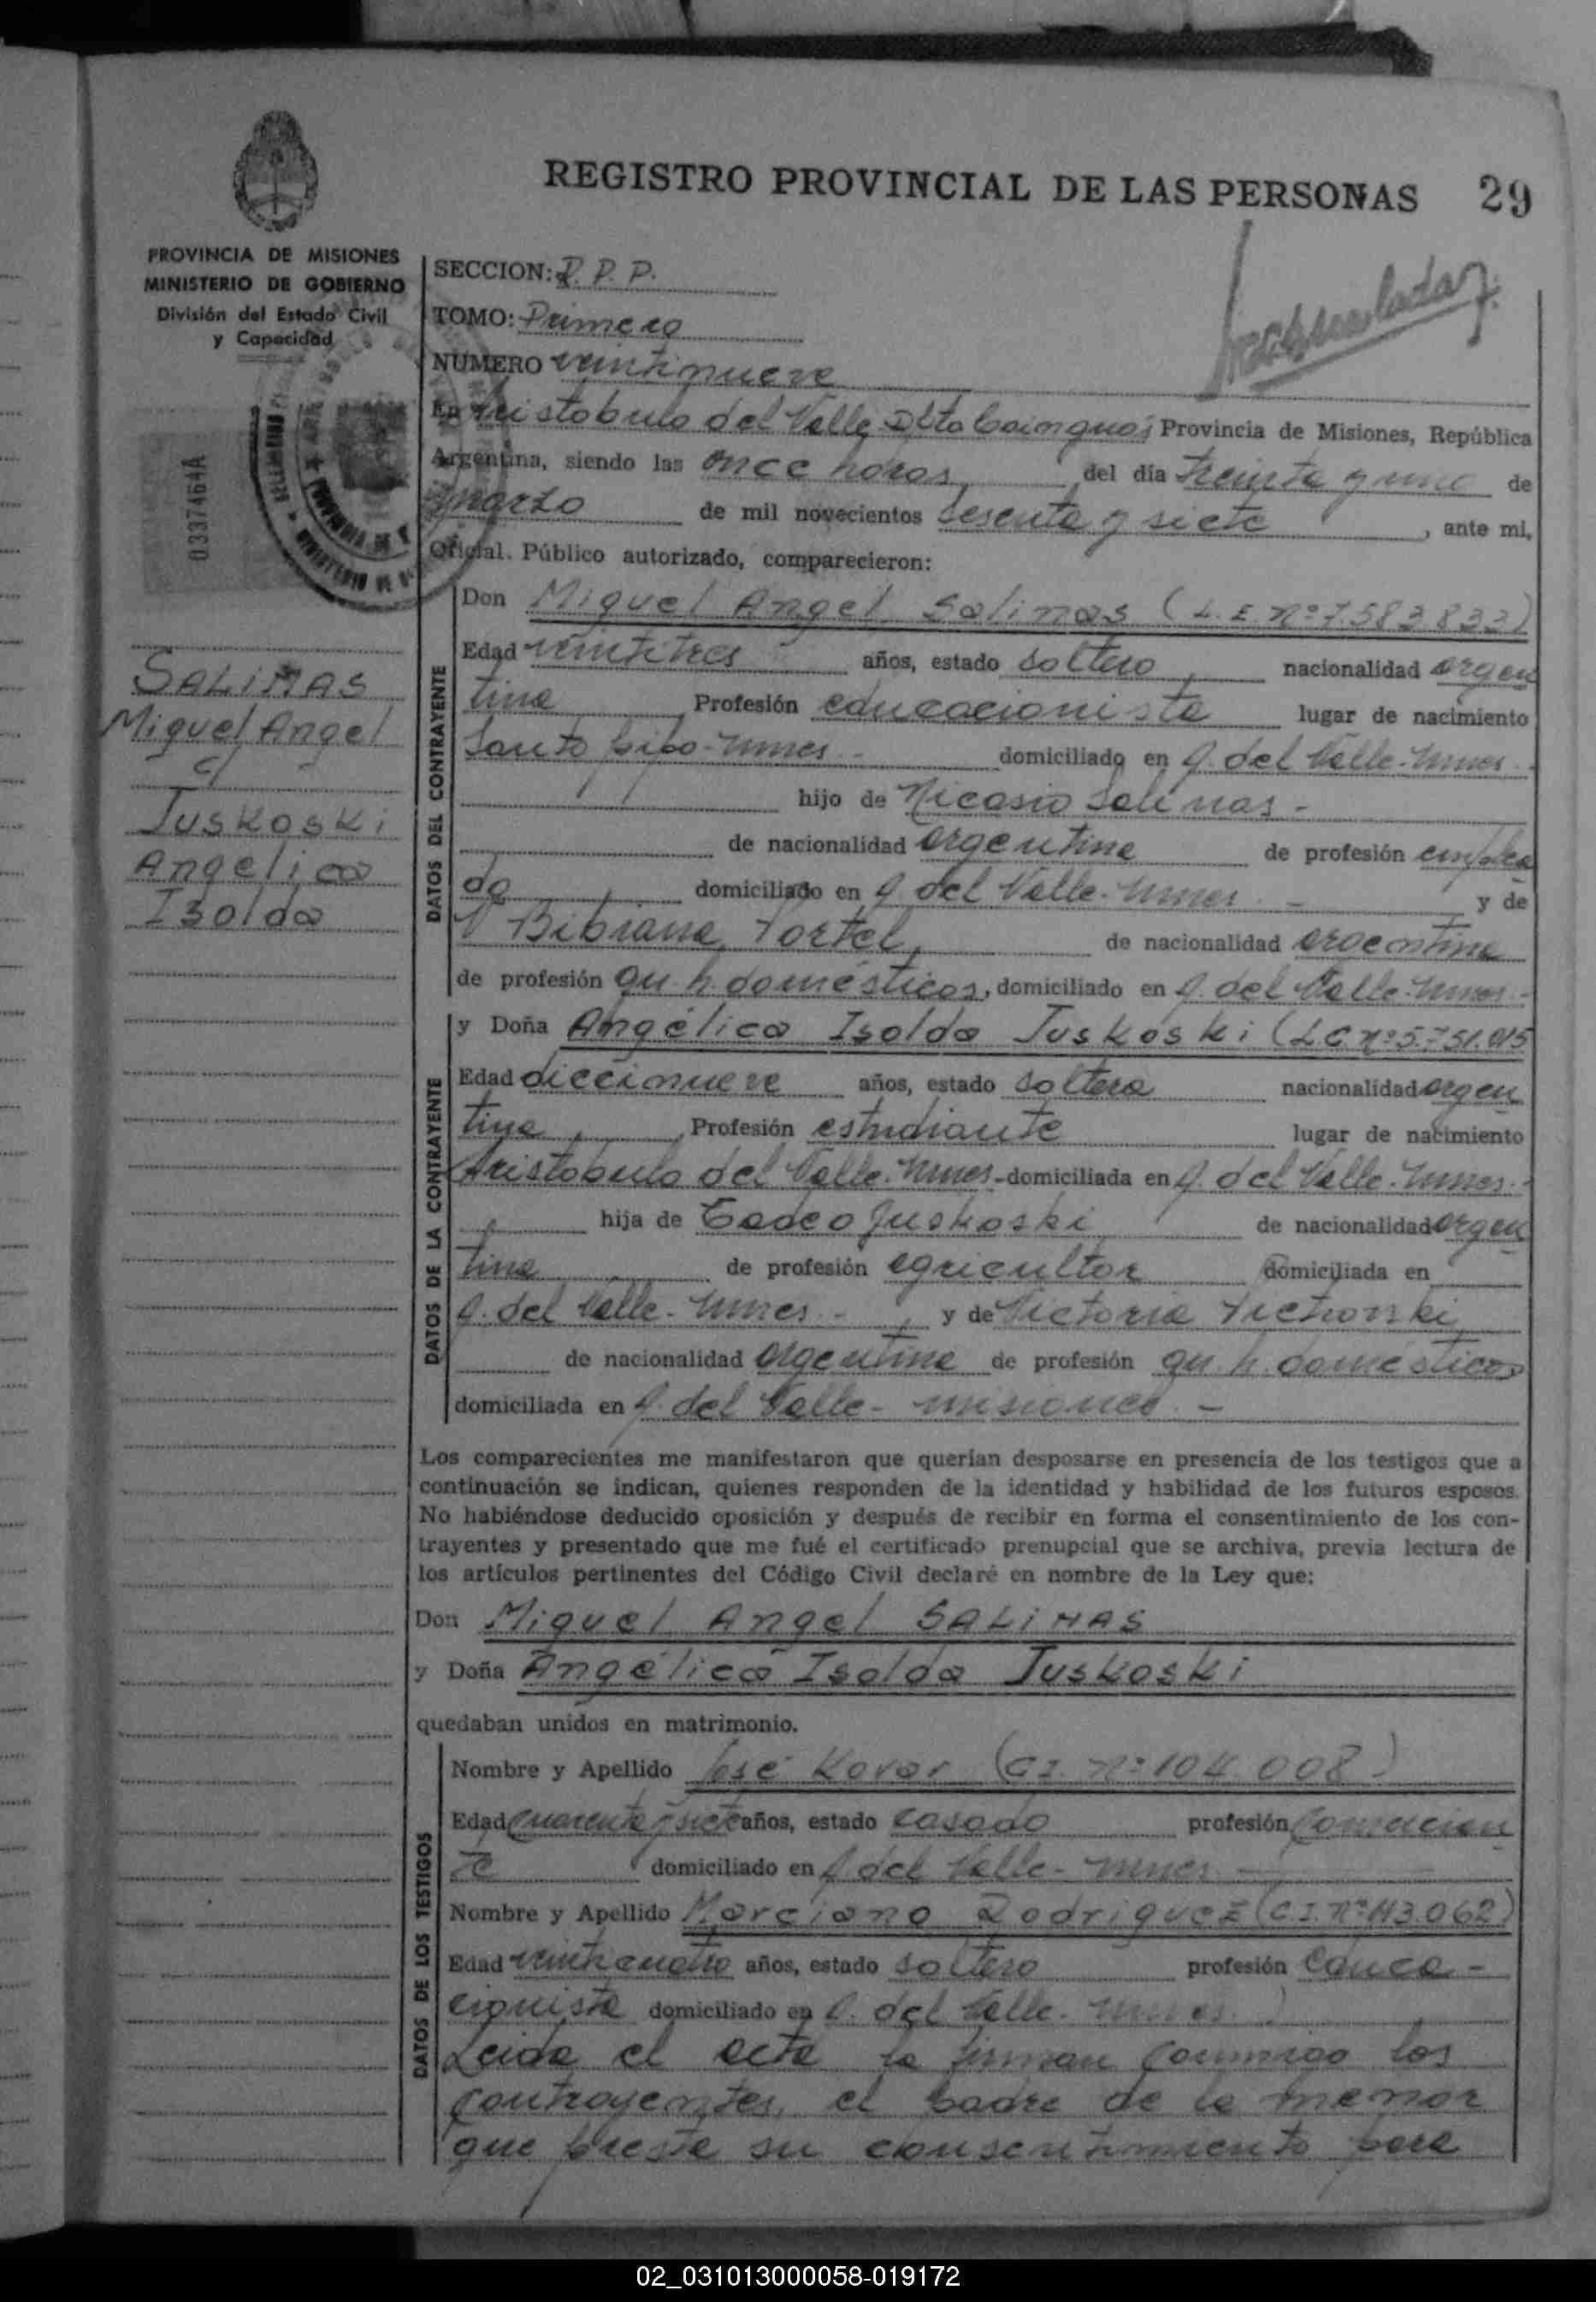 REGISTRO PROVINCIAL DE LAS PERSONAS 29
PROVINCIA DE MISIONES
MINISTERIO DE GOBIERNO
División del Estado Civil
y Capacidad
0337464A
SALINAS
Miguel Angel
c/
Juskoski
Angelica
Isolda
SECCION: R. P. P.
TOMO: Primero
NUMERO veintinueve
En Aristobulo del Valle Dpto Cainguás Provincia de Misiones, República
Argentina, siendo las once horas, del día treinta y uno de
marzo de mil novecientos sesenta y siete, ante mi,
Oficial. Público autorizado, comparecieron:
DATOS DEL CONTRAYENTE
Don Miguel Angel Salinas (L.E. nº 7.583.833)
Edad veintitres años, estado soltero, nacionalidad argen
tina Profesión educacionista lugar de nacimiento
Santo Pipo - Mnes - domiciliado en A. del Valle - Mnes -
hijo de Nicasio Salinas -
de nacionalidad argentina de profesión emplea
do domiciliado en A. del Valle - Mnes. - y de
Bibiana Portel, de nacionalidad argentina
de profesión qu. h. domésticos, domiciliado en A. del Valle - Mnes -
DATOS DE LA CONTRAYENTE
y Doña Angélica Isolda Juskoski (LC nº 5.751.015
Edad diecinueve años, estado soltera nacionalidad argen
tina, Profesión estudiante lugar de nacimiento
Aristobulo del Valle - Mnes - domiciliada en A. del Valle - Mnes. -
hija de Tadeo Juskoski de nacionalidad argen
tina de profesión agricultor domiciliada en
A. del Valle - Mnes - y de Victoria
de nacionalidad argentina de profesión qu. h. domésticos
domiciliada en A. del Valle - misiones. -
Los comparecientes me manifestaron que querían desposarse en presencia de los testigos que a
continuación se indican, quienes responden de la identidad y habilidad de los futuros esposos.
No habiéndose deducido oposición y después de recibir en forma el consentimiento de los con-
trayentes y presentado que me fué el certificado prenupcial que se archiva, previa lectura de
los artículos pertinentes del Código Civil declaré en nombre de la Ley que:
Don Miguel Angel SALINAS
y Doña Angélica Isolda Juskoski
quedaban unidos en matrimonio.
DATOS DE LOS TESTIGOS
Nombre y Apellido José Kovar (C.I. nº 104.008)
Edad cuarenta y siete años, estado casado profesión comercian
te domiciliado en A. del Valle - Mnes -
Nombre y Apellido Marciano Rodriguez (C.I. nº 113.062)
Edad veinticuatro años, estado soltero profesión educa -
cionista domiciliado en A. del Valle - Mnes.
Leida el acta la firman conmigo los
contrayentes, el padre de la menor
que presta su consentimiento para
02_031013000058-019172